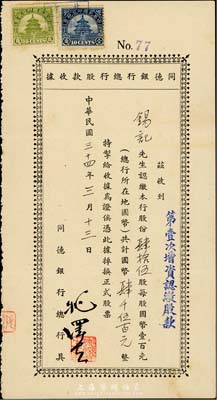 10 CENTS
10 CENTS
No. 77
同德銀行總行股款收據
茲收到
第壹次增資認繳股款
錫記
先生認繳本行股份肆拾伍股每股國幣壹百元
(總行所在地國幣)共計國幣肆千伍百元整
特掣給收據爲證俟憑此據掉換正式股票
中華民國三十四年三月十三日
同德銀行總行具